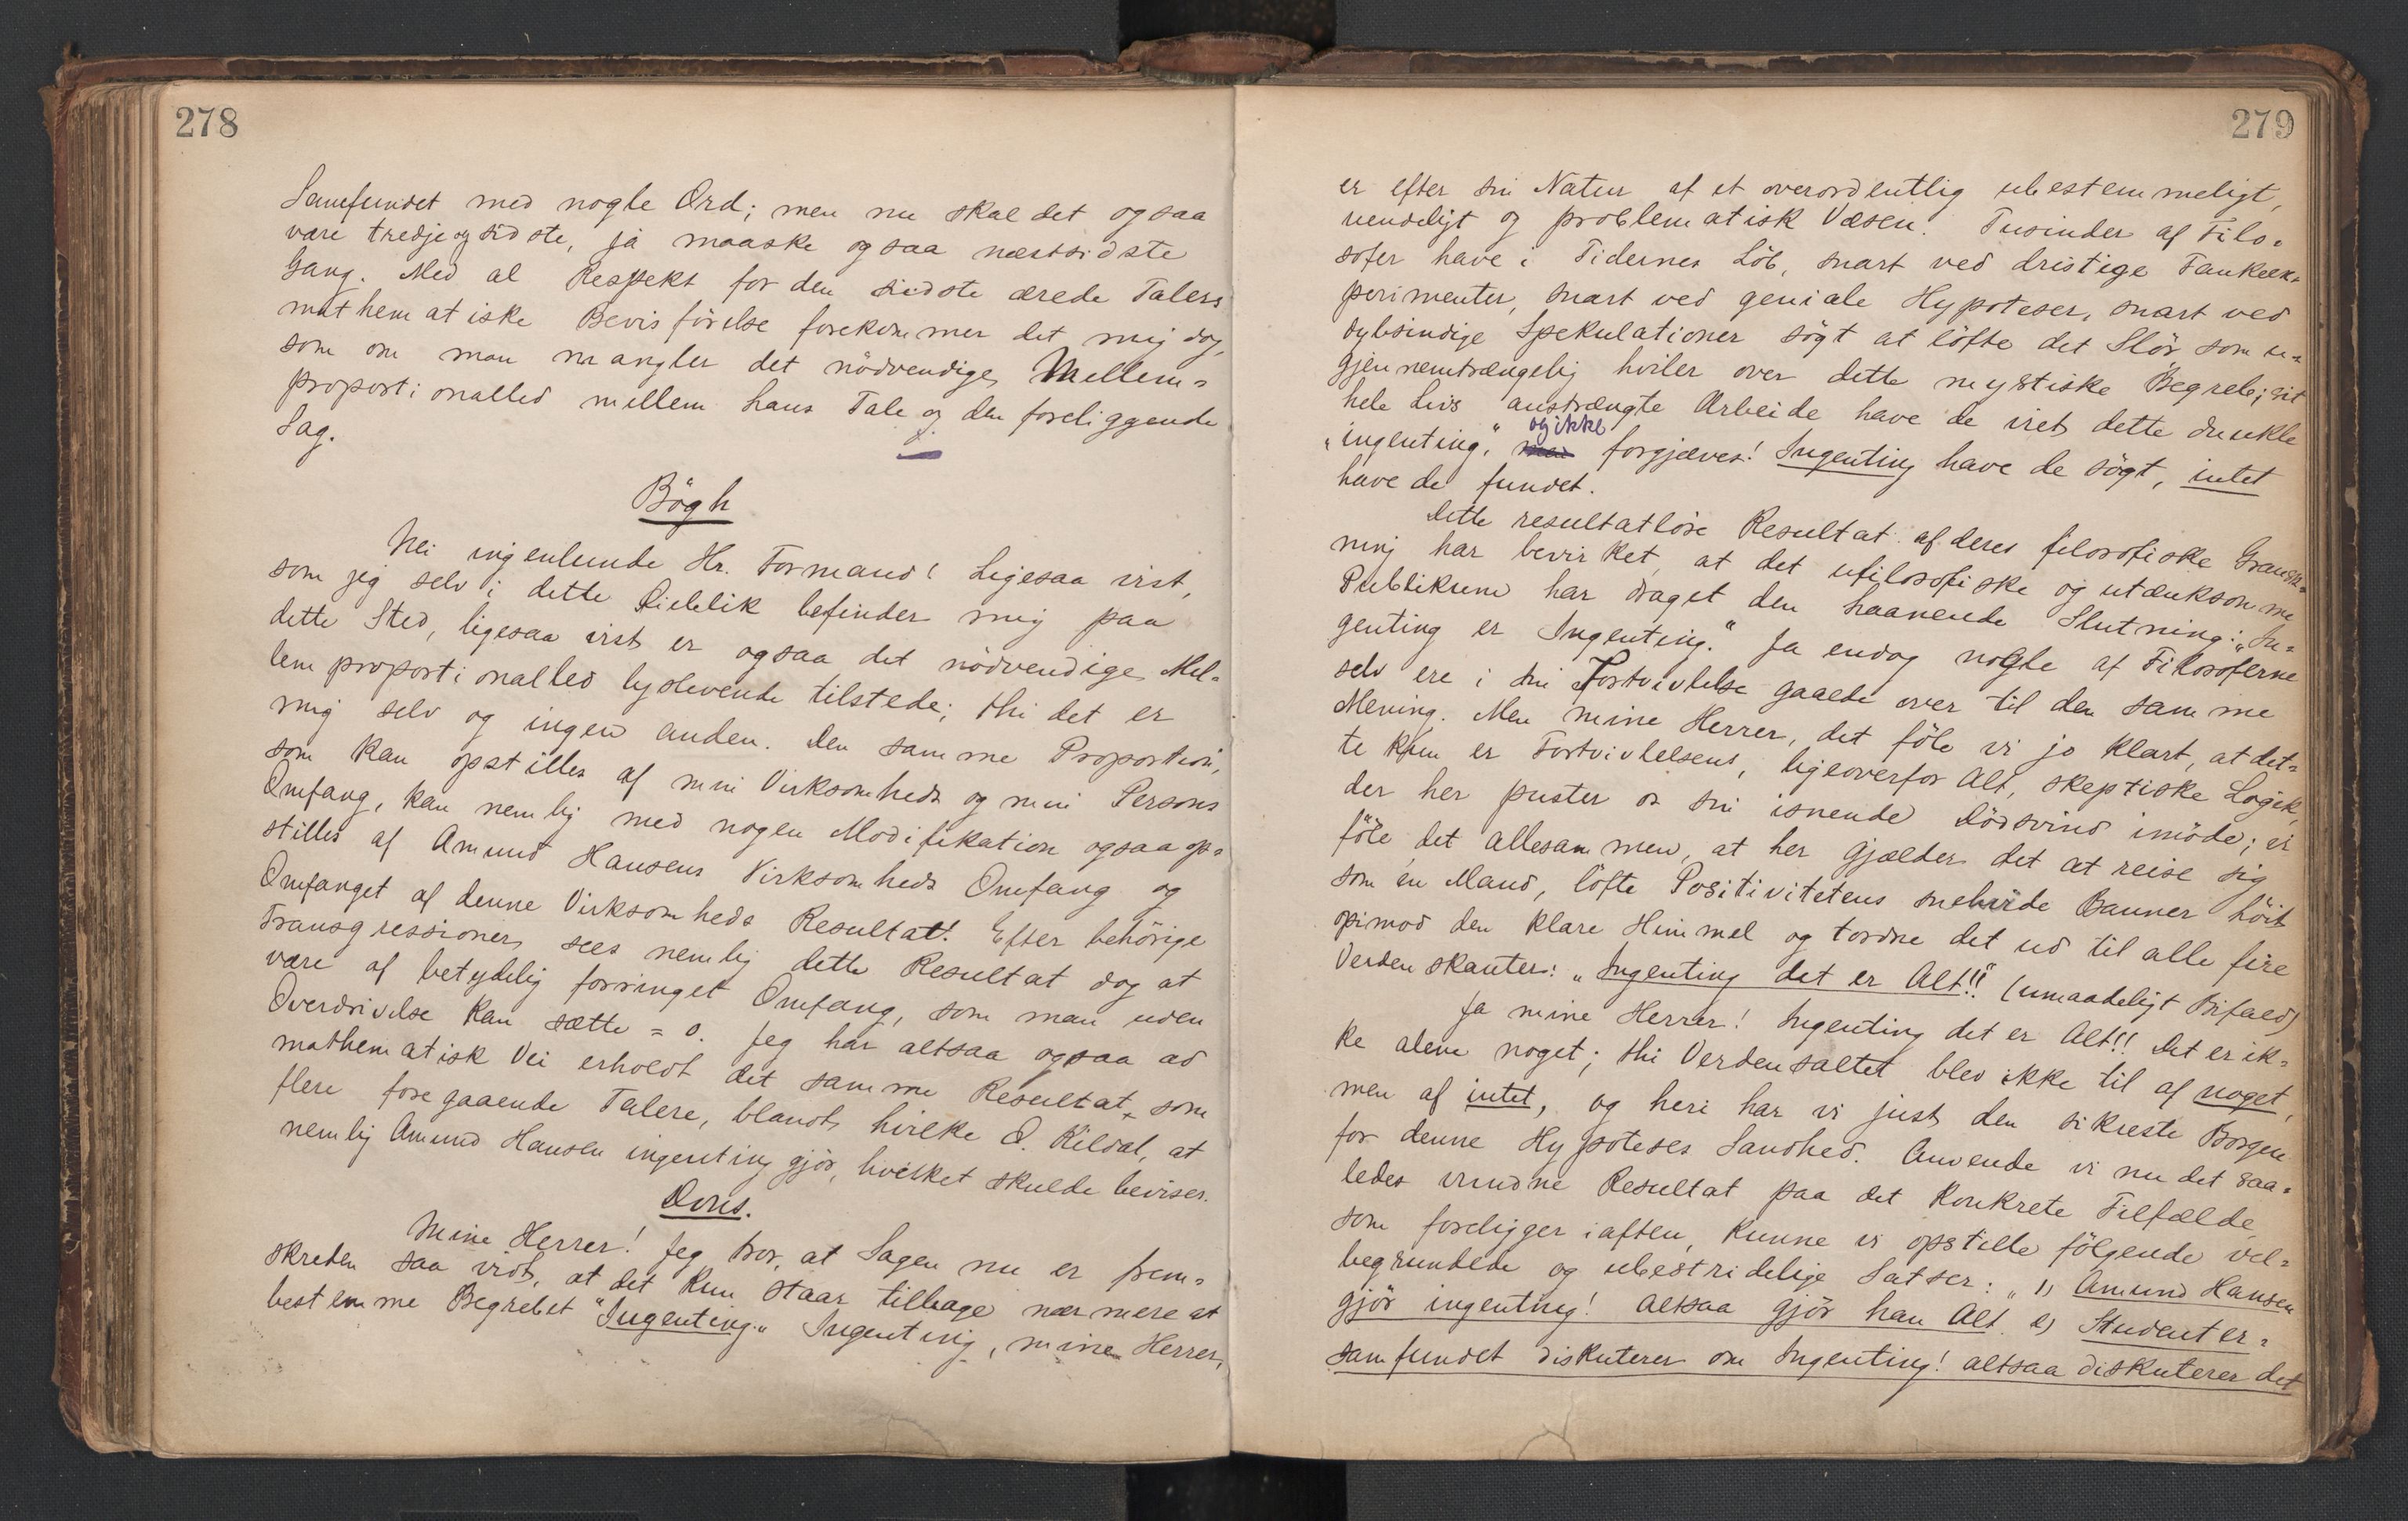 278
Samfundet med nogle Ord; men nu skal det ogsaa
være tredje og sidste, ja maaske ogsaa næstsidste
Gang. Med al Respekt for den sidste ærede Talers
mathematiske Bevisförelse forekommer det mig dog,
som om man mangler det nödvendige Mellem=
proportionalled mellem hans Tale og den foreliggende
Sag.
Bögh
Nei ingenlunde Hr. Formand! Ligesaa vist,
som jeg selv i dette Öieblik befinder mig paa
dette Sted, ligesaa vist er ogsaa det nödvendige Mel=
lemproportionalled lyslevende tilstede; thi det er
mig selv og ingen anden. Den samme Proportion,
som kan opstilles af min Virksomheds og min Persons
Omfang, kan nemlig med nogen Modifikation ogsaa op=
stilles af Amund Hansens Virksomheds Omfang og
Omfanget af denne Virksomheds Resultat! Efter behörige
Transgressioner sees nemlig dette Resultat dog at
være af betydelig forringet Omfang, som man uden
Overdrivelse kan sætte = 0. Jeg har altsaa ogsaa ad
mathematisk Vei erholdt det samme Resultat, som
flere foregaaende Talere, blandt hvilke O. Kildal, at
nemlig Amund Hansen ingenting gjör, hvilket skulde bevises.
Dons.
Mine Herrer! Jeg tror, at Sagen nu er frem=
skreden saa vidt, at det kun staar tilbage nærmere at
bestemme Begrebet "Ingenting". Ingenting, mine Herrer,
279
er efter sin Natur af et overordentlig ubestemmeligt,
uendeligt og problematisk Væsen. Tusinder af Filo=
sofer have i Tidernes Löb, snart ved dristige Tankeex=
perimenter, snart ved geniale Hypoteser, snart ved
dybsindige Spekulationer sögt at löfte det Slör som u=
gjennemtrængelig hviler over dette mystiske Begreb; sit
hele Livs anstrængte Arbeide have de viet dette dunkle
og ikke
"ingenting", men forgjæves! Ingenting have de sögt, intet
have de fundet.
Dette resultatlöse Resultat af deres filosofiske Gransk=
ning har bevirket, at det ufilosofiske og utænksomme
Publikum har draget den haanende Slutning: "In=
genting er Ingenting." Ja endog nogle af Filosoferne
selv ere i sin Fortvivlelse gaaede over til den samme
Mening. Men mine Herrer, det föle vi jo klart, at det=
te kun er Fortvivlelsens, ligeoverfor Alt, skeptiske Logik,
der her puster os sin isnende Dödsvind imöde; vi
föle det allesammen, at her gjælder det at reise sig
som en Mand, löfte Positivitetens snehvide Banner höit
opimod den klare Himmel og tordne det ud til alle fire
Verdenskanter: "Ingenting det er Alt!!" (umaadeligt Bifald)
Ja mine Herrer! Ingenting det er Alt!! Det er ik=
ke alene noget; thi Verdensaltet blev ikke til af noget,
men af intet, og heri har vi just den sikreste Borgen
for denne Hypoteses Sandhed. Anvende vi nu det saa=
ledes vundne Resultat paa det konkrete Tilfælde,
som foreligger iaften, kunne vi opstille fölgende vel=
begrundede og ubestridelige Satser: "1) Amund Hansen
gjör ingenting! altsaa gjör han Alt. 2) Studenter=
samfundet diskuterer om Ingenting! altsaa diskuterer det